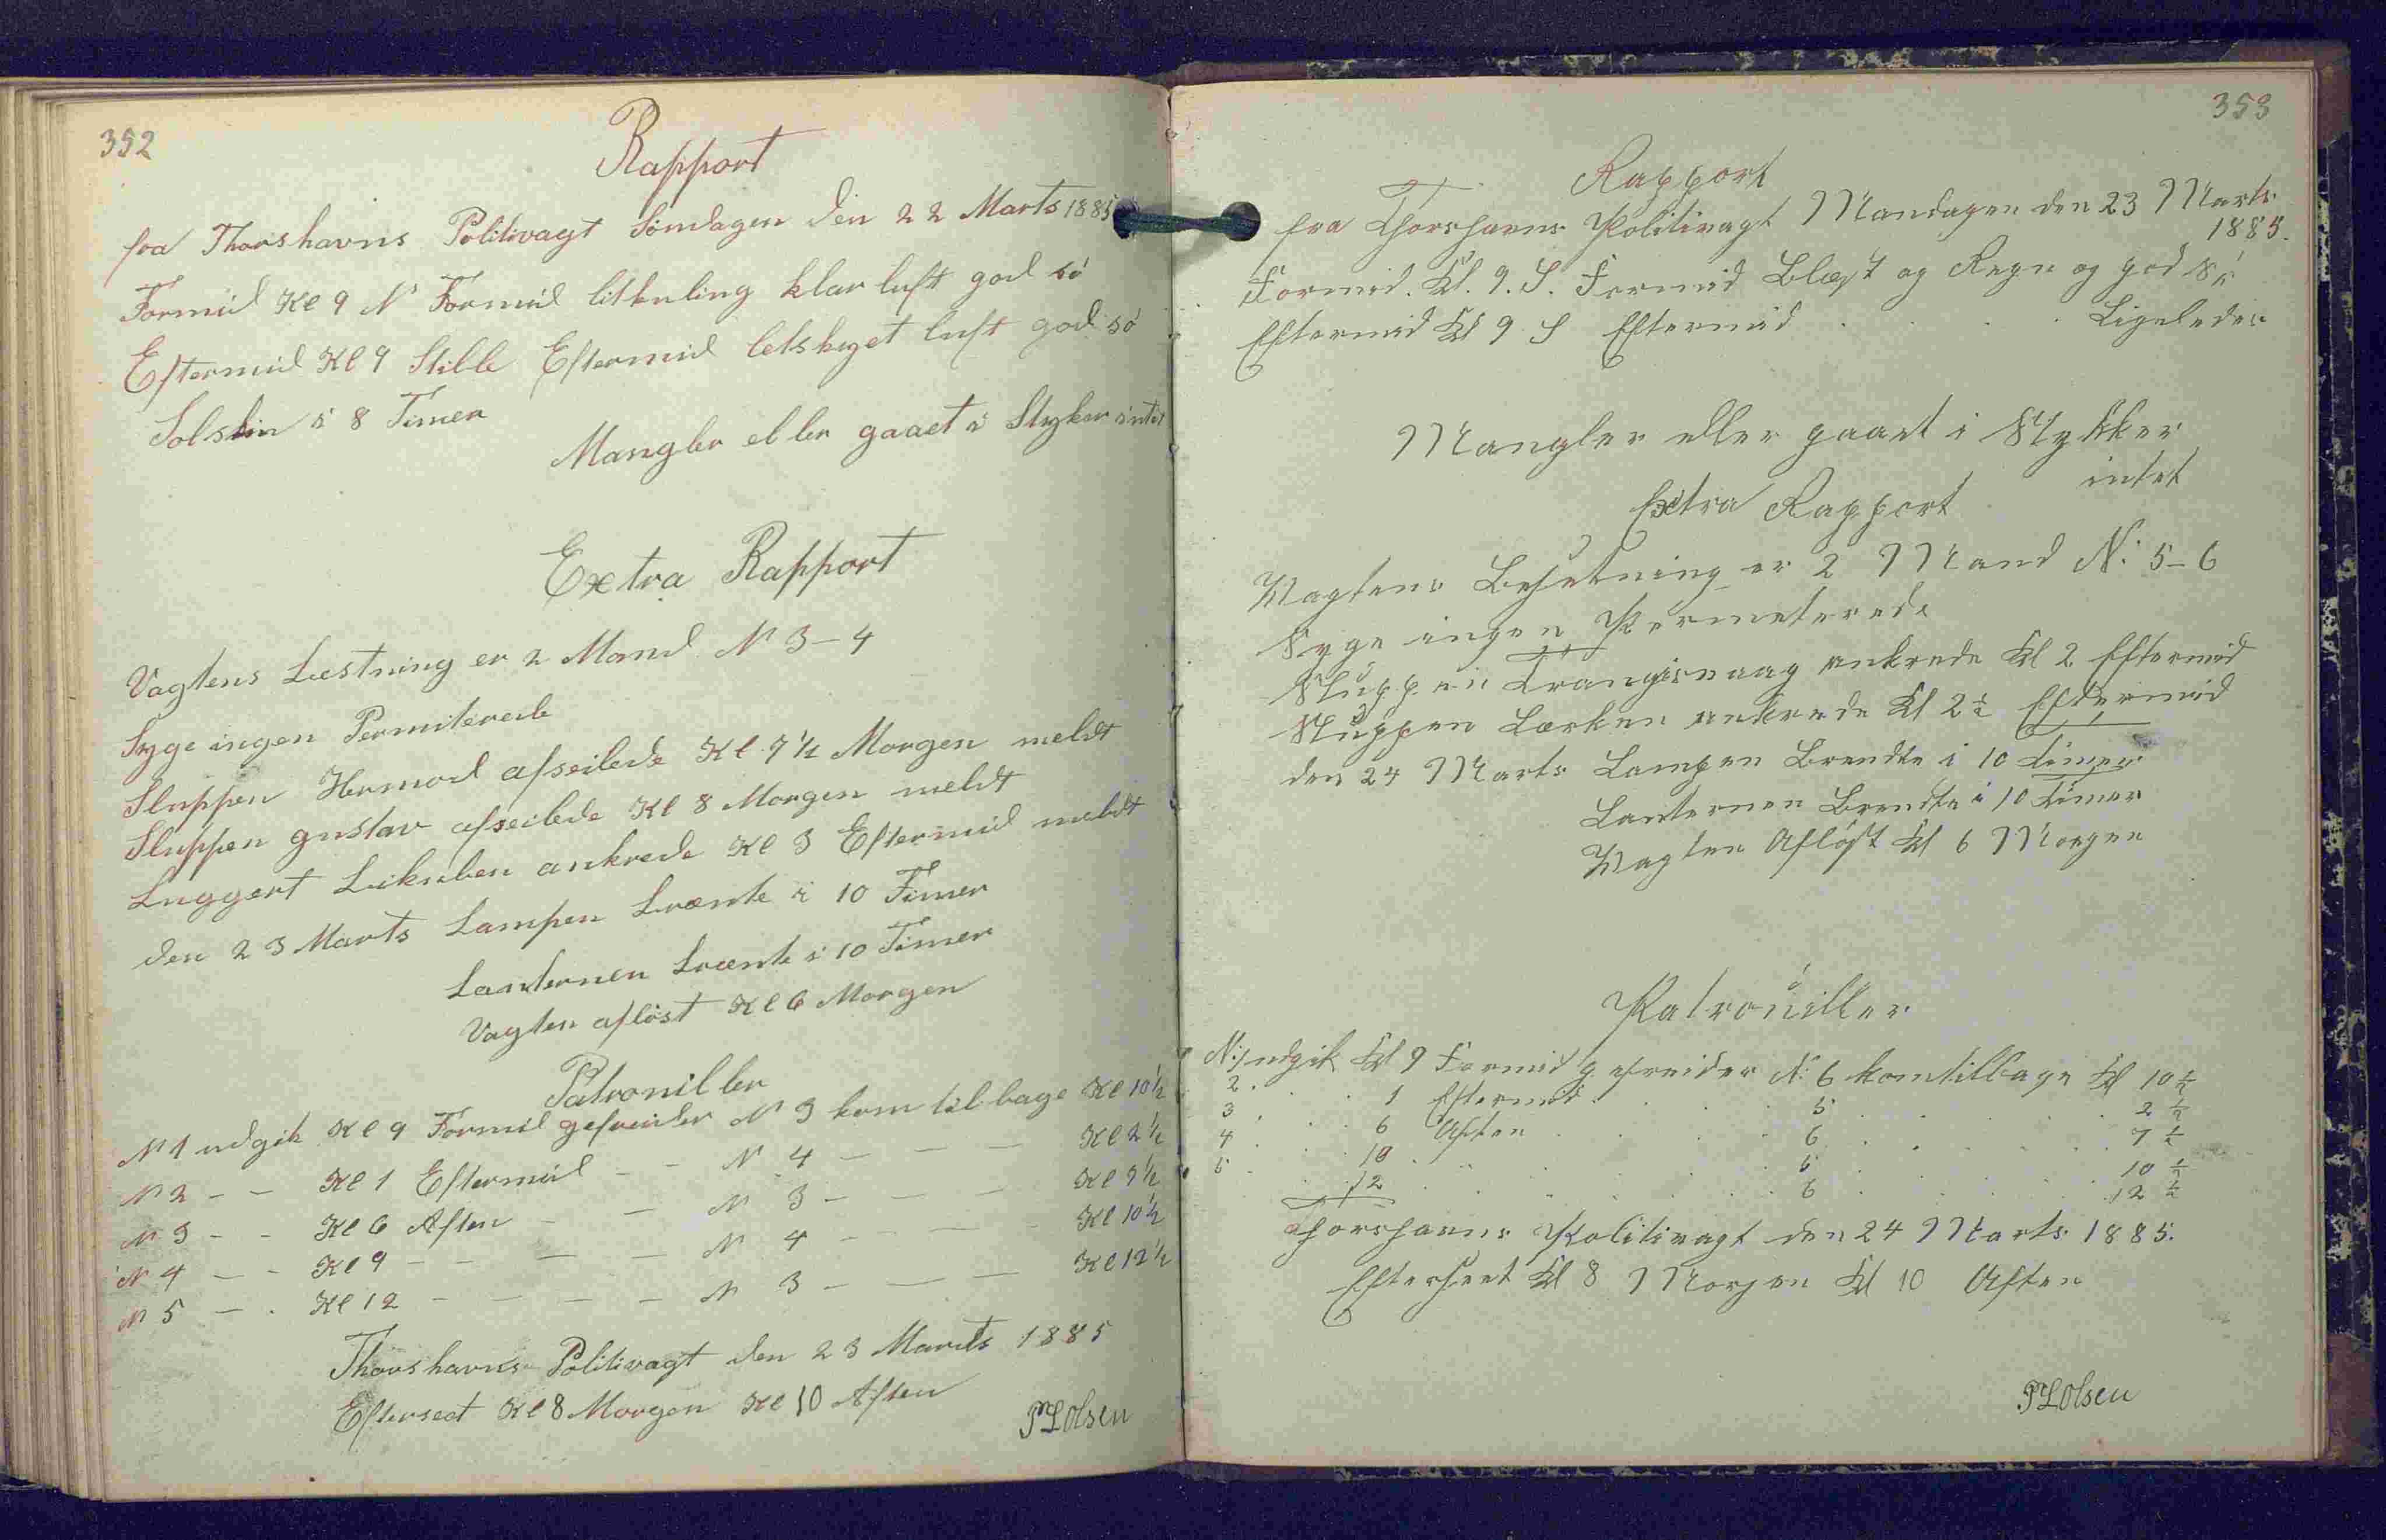 352
Rapport
fra Thorshavns Politivagt Søndagen den 22 Marts 1885
Formid Kl 9 N Formid litkuling klar luft god sö
Eftermid Kl 9 Stille Eftermid letskyet luft god sö
Solskin i 8 Timer
Mangler eller gaaet i Styker intet
Extra Rapport
Vagtens Besetning er 2 Mand N 3-4
Syge ingen Permiterede
Sluppen Hermod afseilede Kl 7 1/2 Morgen meldt
Sluppen gustav afseilede Kl 8 Morgen meldt
Luggert ankrede Kl 3 Eftermid meldt
den 23 Marts Lampen brænte i 10 Timer
Lanternen brænte i 10 Timer
Vagten aflöst Kl 6 Morgen
Patroniller
N 1 udgik Kl 9 Formid gefreider N 3 kom tilbage Kl 10 1/2
N 2 - - Kl 1 Eftermid - - N 4 - - - Kl 2 1/2
N 3 - - Kl 6 Aften - - N 3 - - - Kl 7 1/2
N 4 - - Kl 9 - - - - N 4 - - - Kl 10 1/2
N 5 - - Kl 12 - - - - N 3 - - - Kl 12 1/2
Thorshavns Politivagt den 23 Marts 1885
Efterseet Kl 8 Morgen Kl 10 Aften
PLOlsen
353
Rapport
fra Thorshavns Politivagt Mandagen den 23 Marts
1885.
Formid. Kl. 9. S. Formid Blæst og Regn og god Sö
Eftermid Kl 9 S Eftermid . . . . Ligeledes
Mangler eller gaaet i Stykker
intet
Extra Rapport
Vagtens Besetning er 2 Mand N: 5-6
Syge ingen Permeterede
Sluppen Trangisvaag ankrede Kl 2 Eftermid
Sluppen Lærken ankrede Kl 2 1/2 Eftermid
den 24 Marts Lampen Brendte i 10 Timer
Lanternen Brendte i 10 Timer
Vagten Aflöst Kl 6 Morgen
Patrouiller
N: 1 udgik Kl 9 Formid gefreider N: 6 kom tilbage Kl 10 1/2
2 . . . 1 Eftermid . . . 5 . . . 2 1/2
3 . . . 6 Aften . . . 6 . . . 7 1/2
4 . . . 10 . . . 5 . . . 10 1/2
5 . . . 12 . . . 6 . . . 12 1/2
Thorshavns Politivagt den 24 Marts 1885.
Efterseet Kl 8 Morgen Kl 10 Aften
PLOlsen